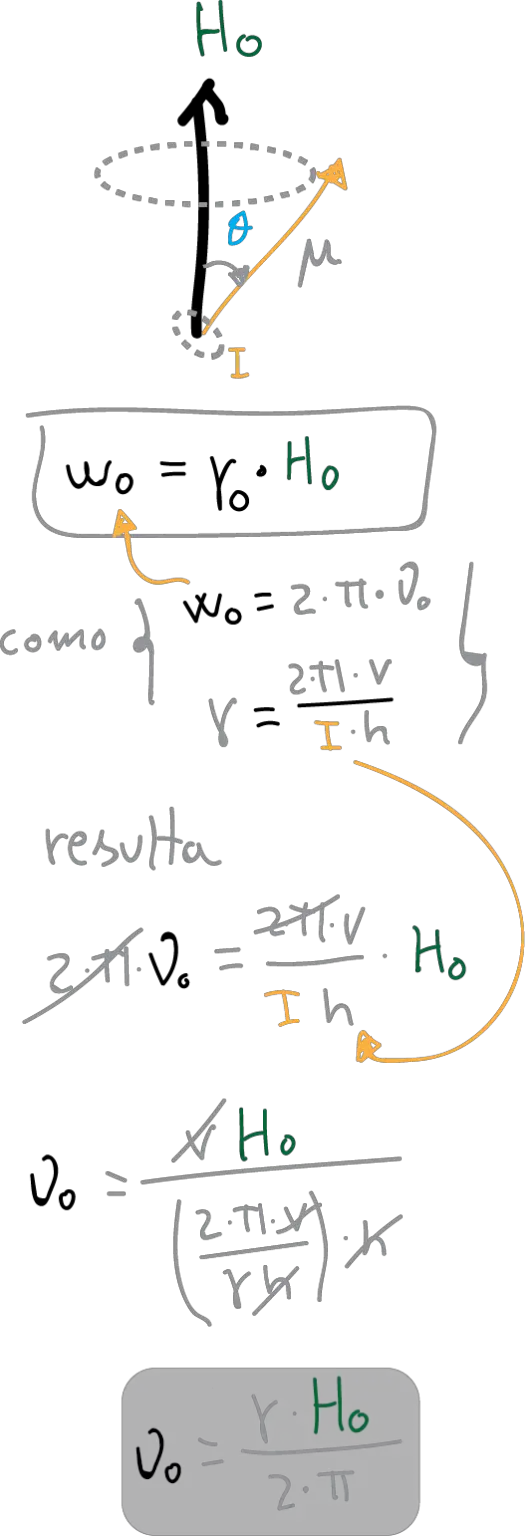 H₀
θ
μ
I
w₀ = γ₀ · H₀
como { w₀ = 2·π·ν₀
γ = 2·π·v / I·h }
resulta
2·π·ν₀ = 2π·v / I h · H₀
ν₀ = v H₀ / (2·π·v / γ h) · h
ν₀ = γ · H₀ / 2·π